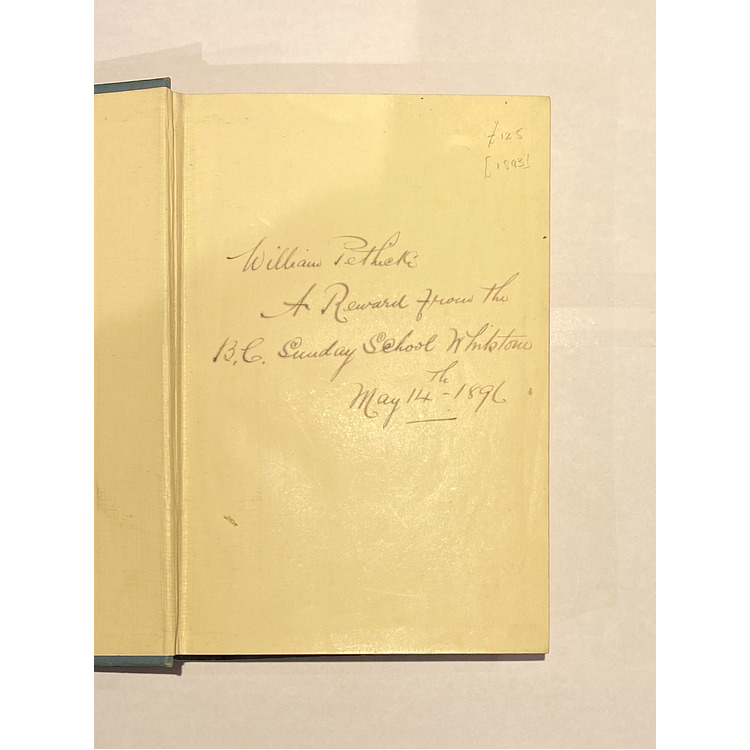 £125
[1893]
William Pethick
A Reward from the
B.C. Sunday School Whitstone
May 14th - 1896